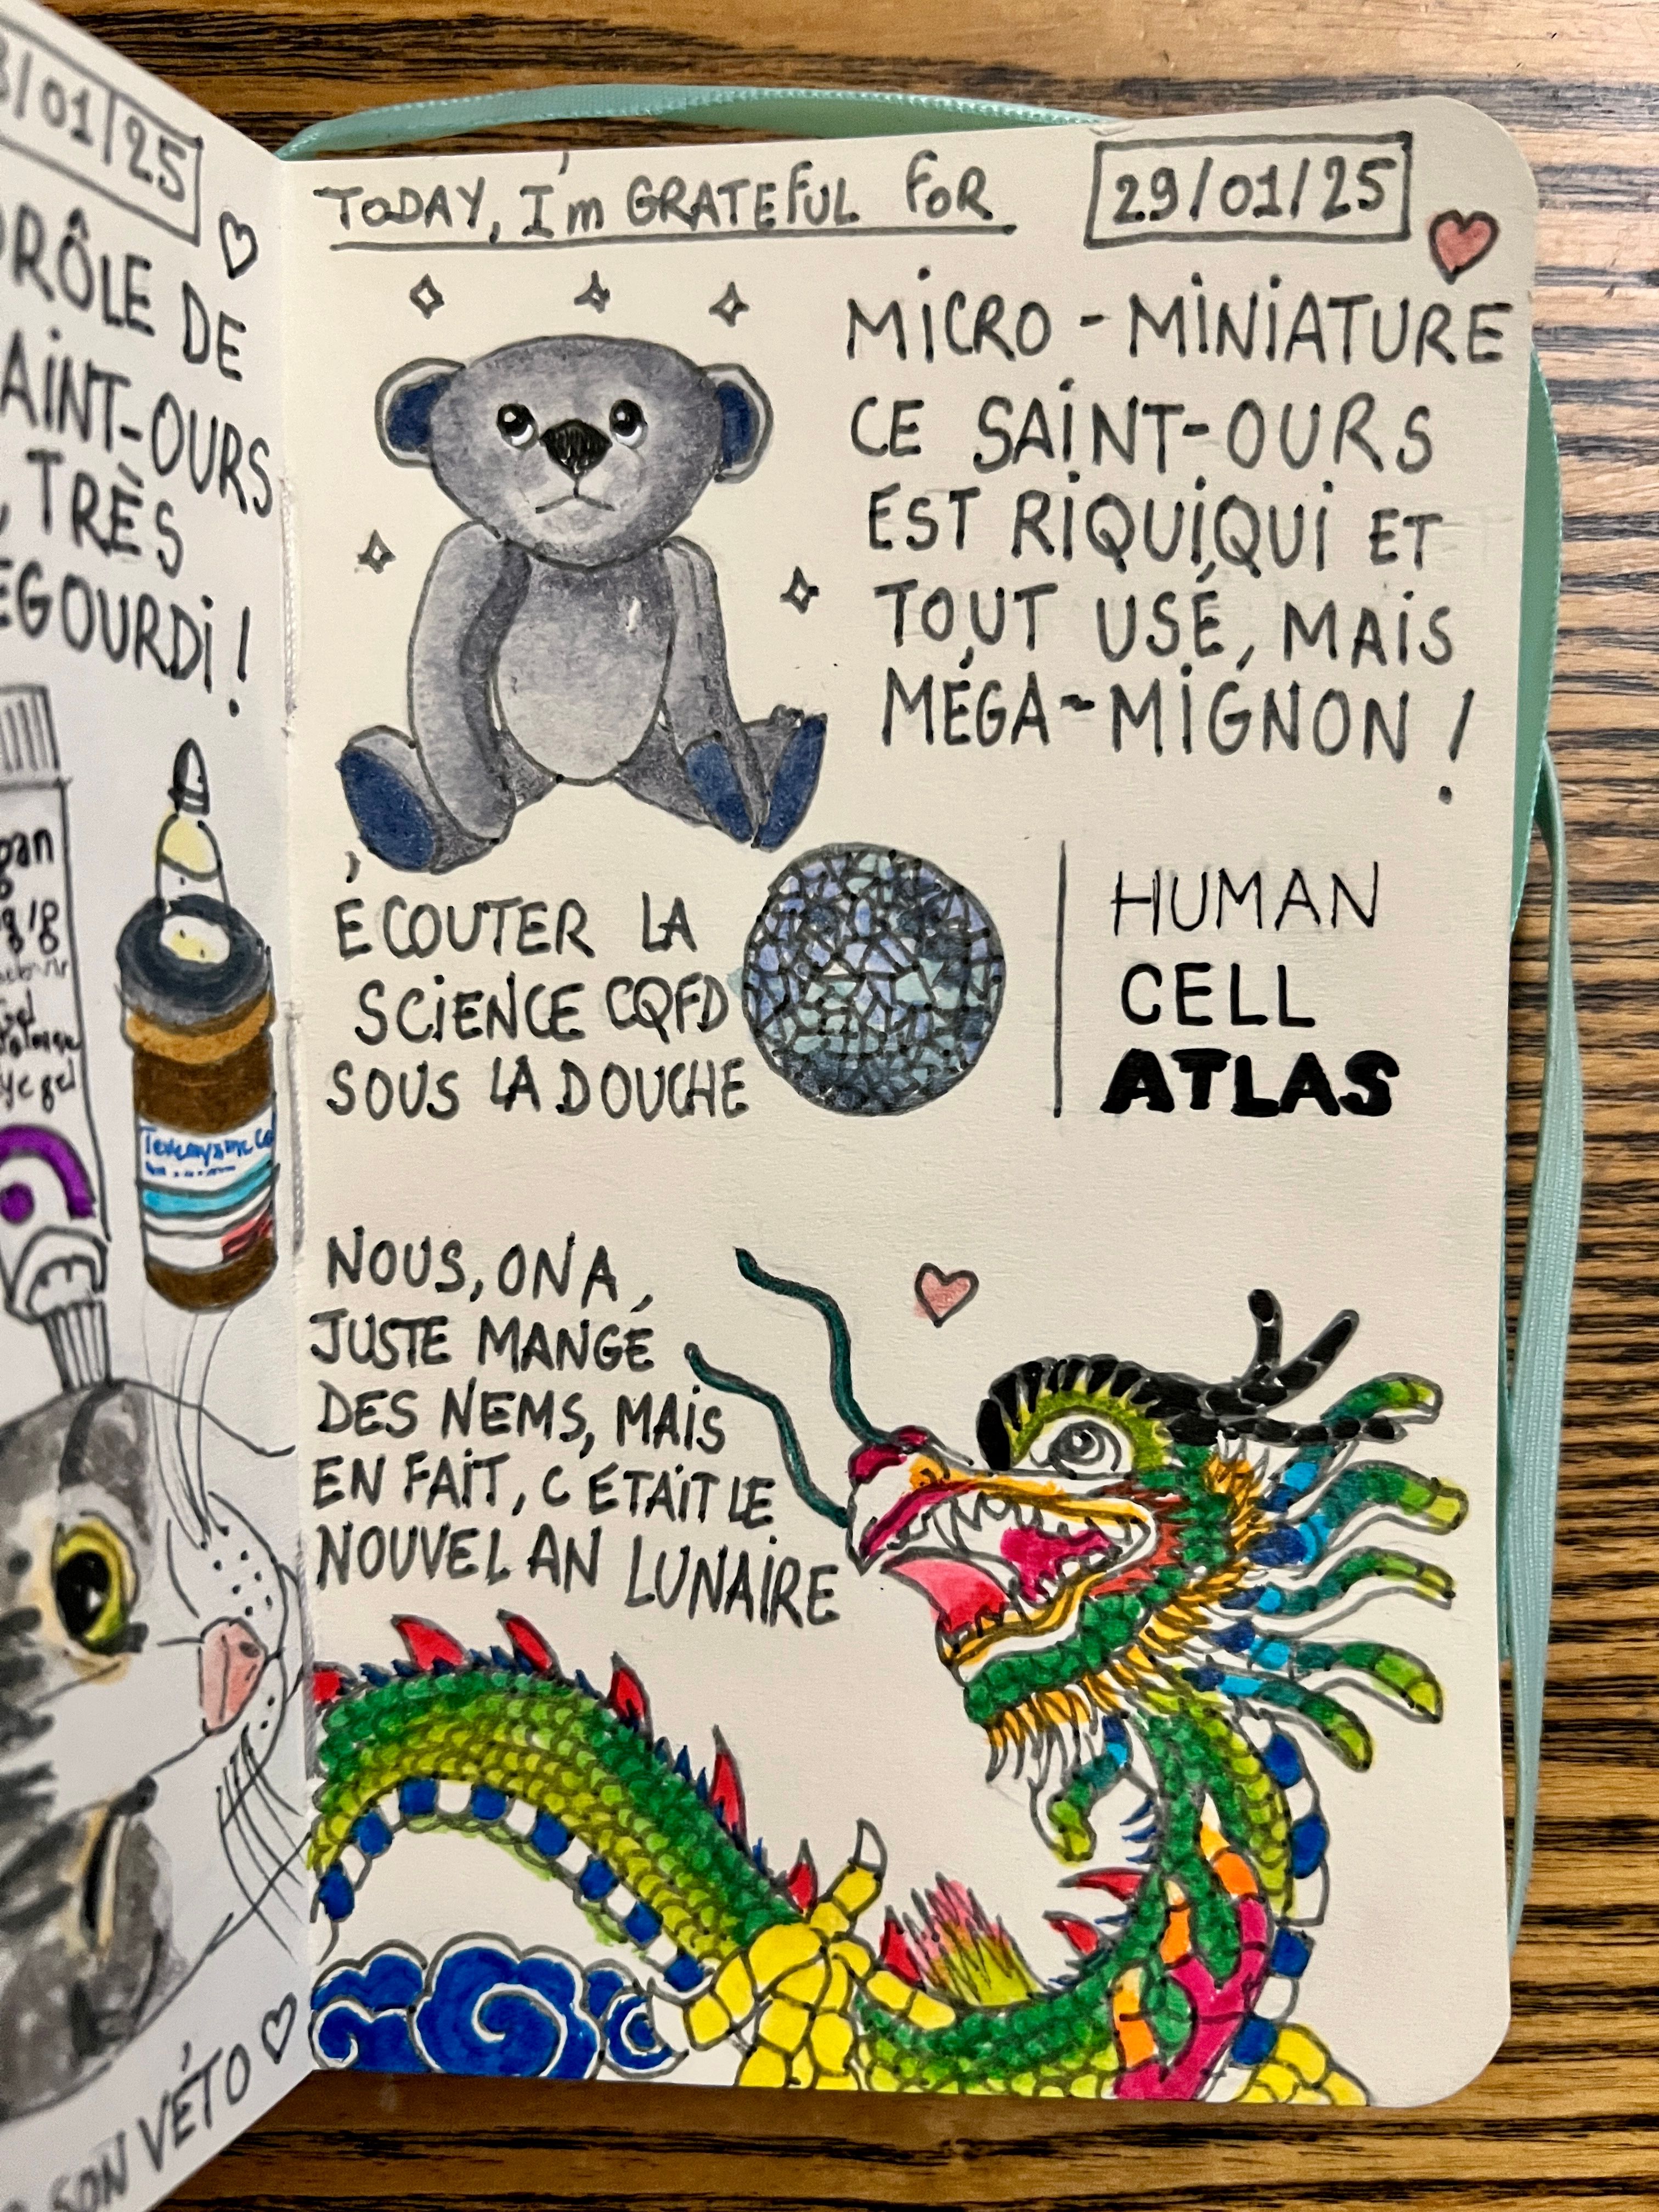 /01/25
DRÔLE DE
SAINT-OURS
, TRÈS
DEGOURDI !
SON VÉTO
TODAY, I'm GRATEFUL FOR 29/01/25
MICRO-MINIATURE
CE SAINT-OURS
EST RIQUIQUI ET
TOUT USÉ, MAIS
MÉGA-MIGNON !
ÉCOUTER LA
SCIENCE CQFD
SOUS LA DOUCHE
HUMAN
CELL
ATLAS
NOUS, ON A
JUSTE MANGÉ
DES NEMS, MAIS
EN FAIT, C'ÉTAIT LE
NOUVEL AN LUNAIRE